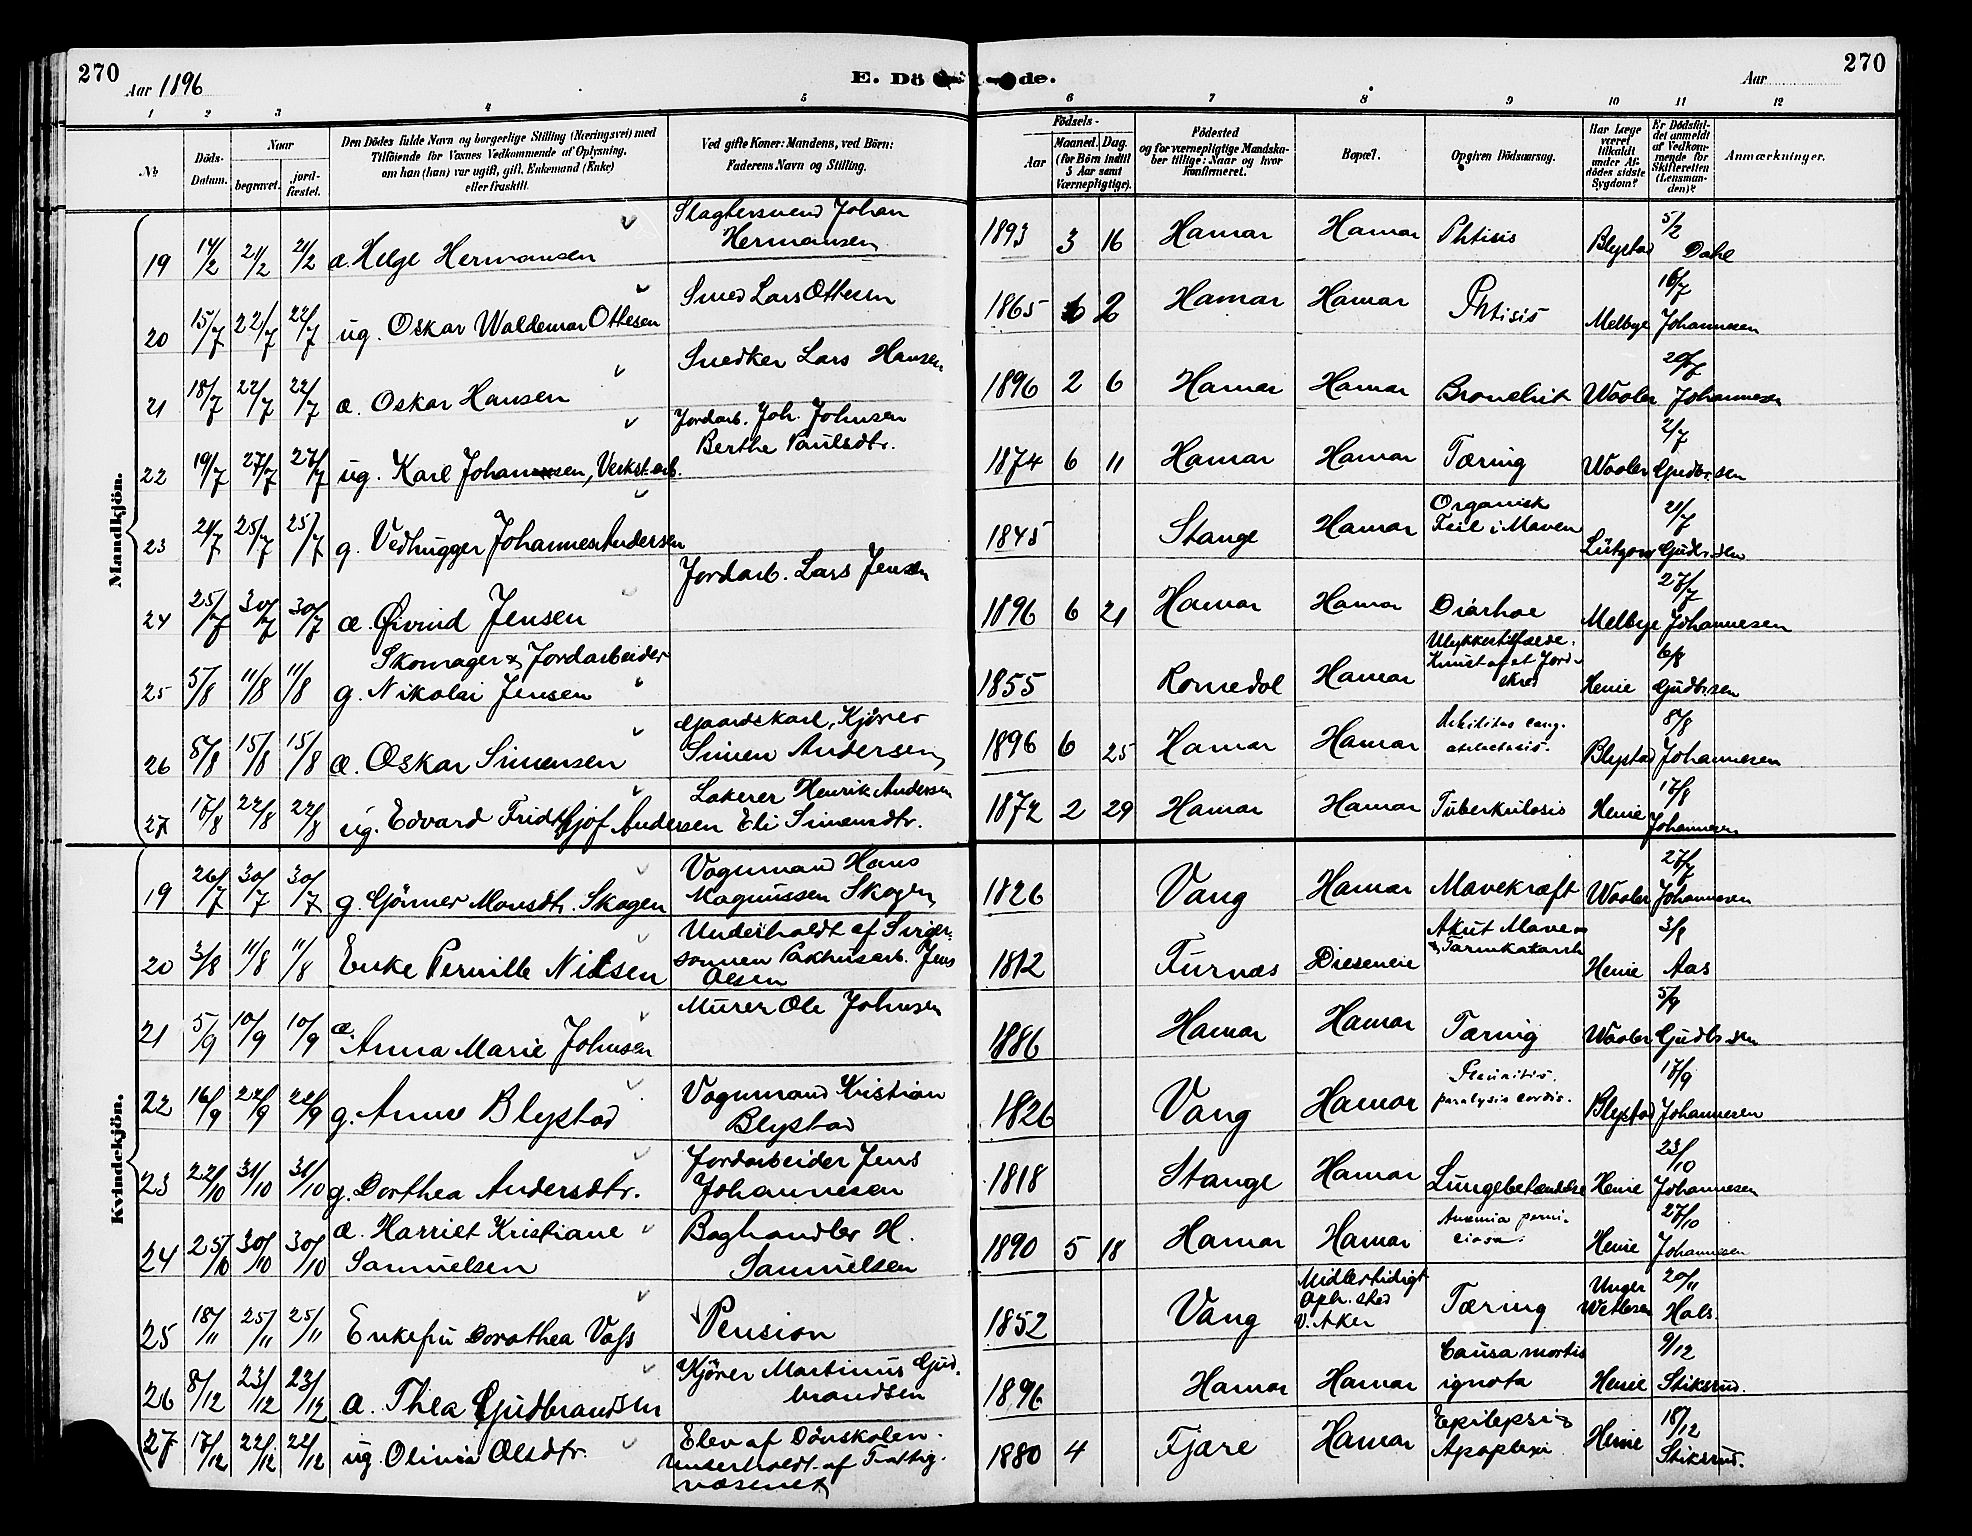 270
Aar 1896
E. Dö
de.
Aar
270
1 2 3 4 5 6 7 8 9 10 11 12
№
Döds-
Datum.
Naar
begravet.
jord-
fæstet.
Den Dödes fulde Navn og borgerlige Stilling (Næringsvei) med
Tilföiende for Voxnes Vedkommende af Oplysning,
om han (hun) var ugift, gift, Enkemand (Enke)
eller fraskilt.
Ved gifte Koner: Mandens, ved Börn:
Faderens Navn og Stilling.
Födsels-
Aar
Maaned.
Dag.
(for Börn indtil
5 Aar samt
Værnepligtige).
Födested
og for værnepligtige Mandska-
ber tillige: Naar og hvor
konfirmeret.
Bopæl.
Opgiven Dödsaarsag.
Har Læge
været
tilkaldt
under Af-
dödes sidste
Sygdom?
Er Dödsfal-
det anmeldt
af Vedkom-
mende for
Skifteretten
(Lensman-
den)?
Anmærkninger.
Mandkjön.
19 14/2 21/2 21/2 æ. Helge Hermansen
Slagtersvend Johan
Hermansen
1893 3 16 Hamar Hamar Phtisis Blystad 5/2
Dahl
20 15/7 22/7 22/7 ug. Oskar Waldemar Ottesen
Smed Lars Ottesen
1865 6 2 Hamar Hamar Phtisis Melbye 16/7
Johannesen
21 18/7 22/7 22/7 æ. Oskar Hansen
Snedker Lars Hansen
1896 2 6 Hamar Hamar Bronchit Wooler 20/7
Johannesen
22 19/7 27/7 27/7 ug. Karl Johansen, Verkst.arb.
Jordarb. Joh. Johnsen
Berthe Paulsdtr.
1874 6 11 Hamar Hamar Tæring Wooler 2/7
Gudbr.sen
23 21/7 25/7 25/7 g. Vedhugger Johannes Andersen
1845 Stange Hamar Organisk
Feil i Maven
Lützow 21/7
Gudbr.sen
24 25/7 30/7 30/7 æ. Øivind Jensen
Jordarb. Lars Jensen
1896 6 21 Hamar Hamar Diarhoe Melbye 27/7
Johannesen
Skomager & Jordarbeider
25 5/8 11/8 11/8 g. Nikolai Jensen
1855 Romedal Hamar Ulykkestilfælde.
Knust af et Jord-
skred
Heme 6/8
Gudbr.sen
26 8/8 15/8 15/8 æ. Oskar Simensen
Gaardskarl, Kjörer
Simen Andersen
1896 6 25 Hamar Hamar Debilitas cong.
atelectasis.
Blystad 8/8
Johannesen
27 17/8 22/8 22/8 ug. Edvard Fridtjof Andersen
Lakerer Henrik Andersen
Eli Simensdtr.
1872 2 29 Hamar Hamar Tuberkulosis Heme 17/8
Johannesen
Kvindekjön.
19 26/7 30/7 30/7 g. Gönner Monsdtr. Skogen
Vognmand Hans
Magnussen Skogen
1826 Vang Hamar Mavekræft Wooler 27/7
Johannesen
20 3/8 11/8 11/8 Enke Pernille Nilsen
Underholdt af Sviger-
sönnen Pakhusarb. Jens
Olsen
1812 Furnæs Dieseneie Akut Mave-
& Tarmkatarrh
Heme 3/8
Aas
21 5/9 10/9 10/9 æ.
Anna Marie Johnsen
Murer Ole Johnsen
1886 Hamar Hamar Tæring Wooler 5/9
Gudbr.sen
22 16/9 22/9 22/9 g. Anne Blystad
Vognmand Kristian
Blystad
1826 Vang Hamar Pleuritis.
paralysis cordis.
Blystad 17/9
Johannesen
23 22/10 31/10 31/10 g. Dorthea Andersdtr.
Jordarbeider Jens
Johannesen
1818 Stange Hamar Lungebetændelse Heme 23/10
Johannesen
24 25/10 30/10 30/10 æ. Harriet Kristiane
Samuelsen
Boghandler H.
Samuelsen
1890 5 18 Hamar Hamar Anæmia perni-
ciosa.
Heme 27/10
Johannesen
25 18/11 25/11 25/11 Enkefru Dorothea Voss
Pension
1852 Vang Midlertidigt
Oph.sted
V. Aker
Tæring Unger
Wetlesen 20/11
Hals.
26 8/12 23/12 23/12 æ. Thea Gudbrandsen
Kjörer Martinus Gud-
brandsen
1896 Hamar Hamar Causa mortis
ignota
Heme 9/12
Stiksrud.
27 17/12 22/12 22/12 ug. Olivia Olsdtr.
Elev af Dövskolen.
Underholdt af Fattig-
væsenet
1880 4 Fjære Hamar Epilepsi &
Apoplexi
Heme 18/12
Stiksrud.